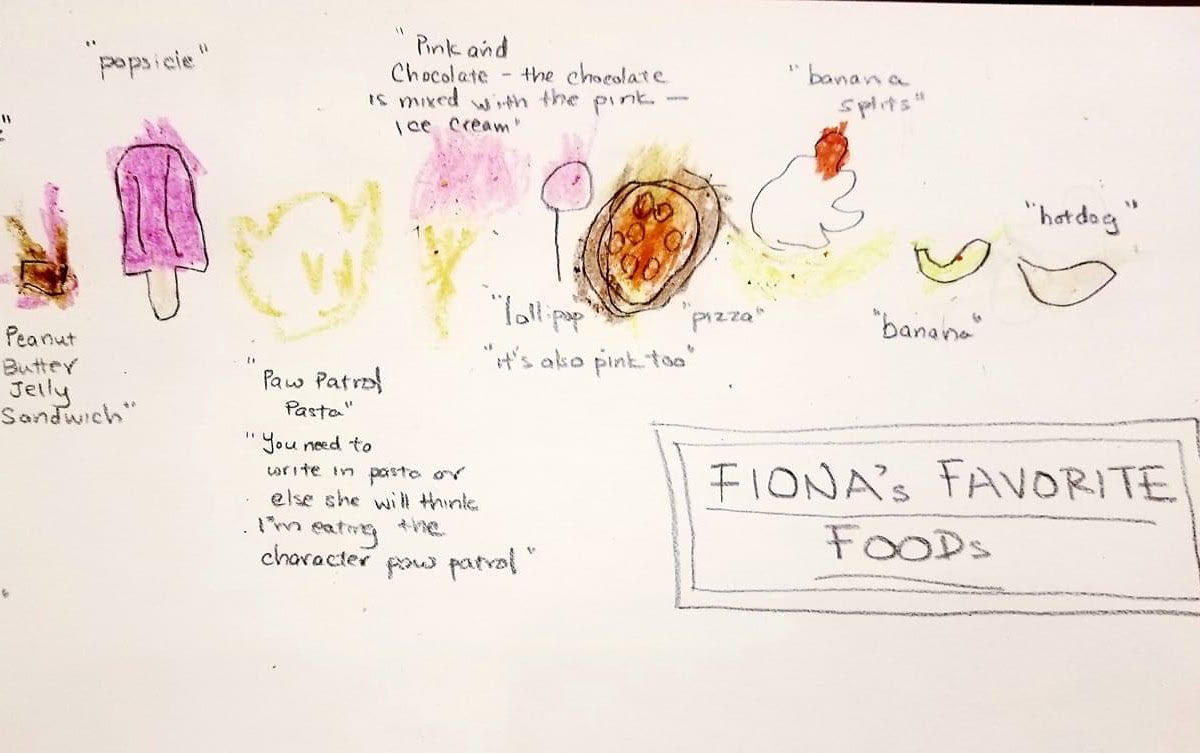 "popsicle"
"Pink and
Chocolate - the chocolate
is mixed with the pink -
Ice Cream"
"banana
splits"
"hotdog"
Peanut
Butter
Jelly
Sandwich"
"lollipop"
"it's also pink too"
"pizza"
"banana"
"Paw Patrol
Pasta"
"You need to
write in pasta or
else she will think
I'm eating the
character paw patrol"
FIONA's FAVORITE
FOODs